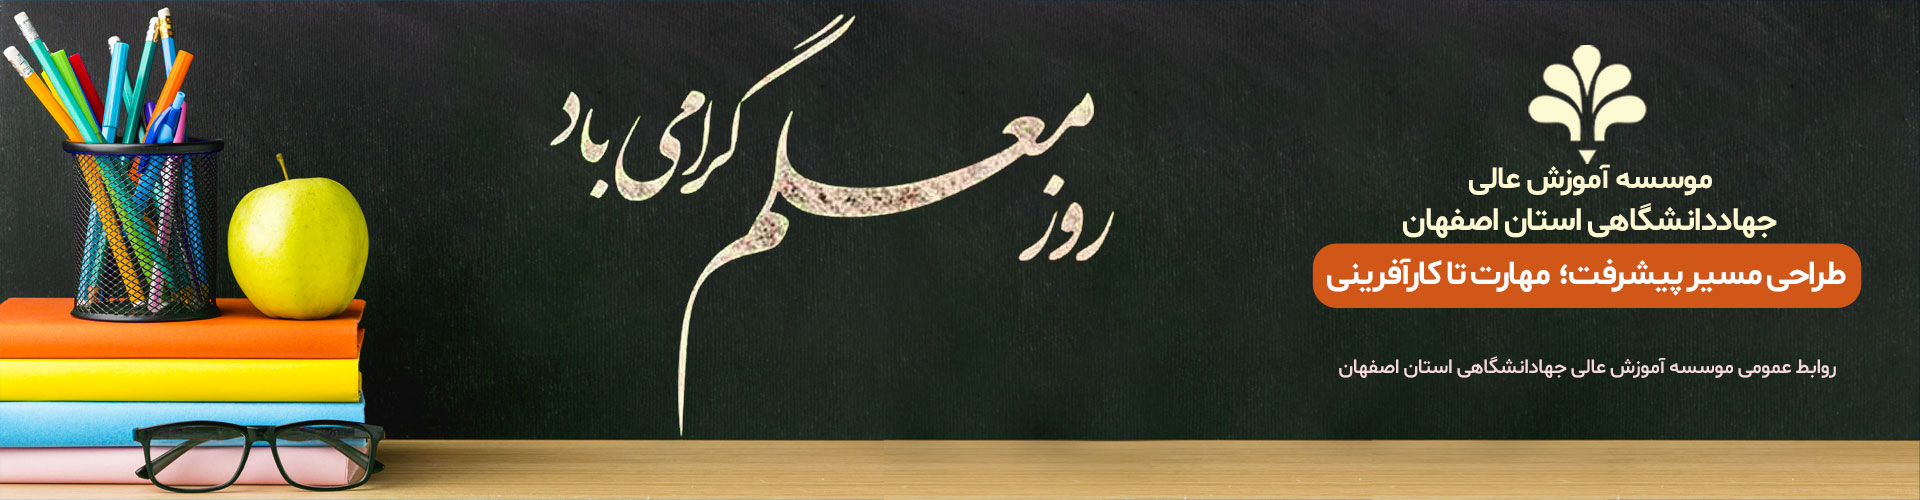 روز معلم گرامی باد
موسسه آموزش عالی
جهاددانشگاهی استان اصفهان
طراحی مسیر پیشرفت؛ مهارت تا کارآفرینی
روابط عمومی موسسه آموزش عالی جهادانشگاهی استان اصفهان